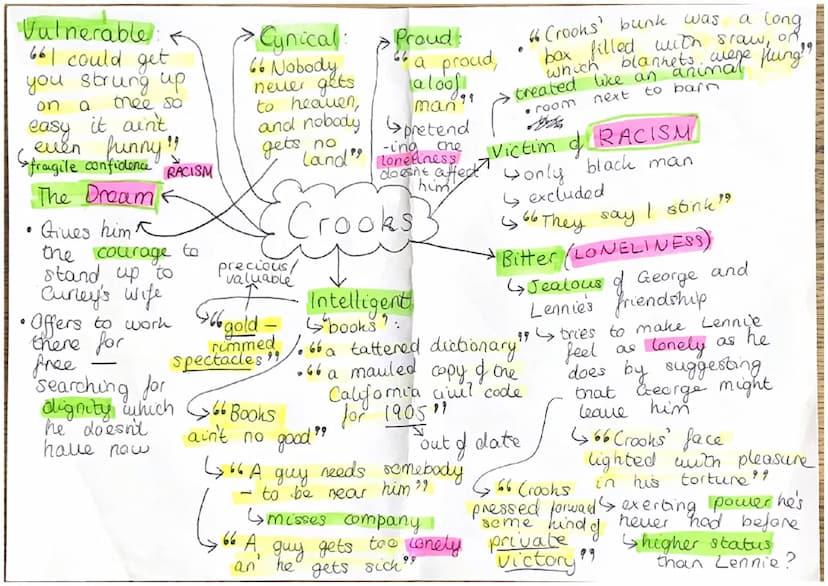 Vulnerable:
"I could get
you strung up
on a tree so
easy it ain't
even funny"
fragile confidence
RACISM
Cynical:
"Nobody
never gets
to heaven,
and nobody
gets no
land"
Proud:
"a proud,
aloof
man"
pretend
-ing the
loneliness
doesn't affect
him
• "Crooks' bunk was a long
box filled with sraw, on
which blankets were flung"
treated like an animal
• room next to barn
Victim of RACISM
only black man
excluded
"They say I stink"
The Dream
• Gives him
the courage to
stand up to
Curley's wife
• Offers to work
there for
free —
searching for
dignity which
he doesn't
have now
Crooks
Bitter (LONELINESS)
Jealous of George and
Lennie's friendship
tries to make Lennie
feel as lonely as he
does by suggesting
that George might
leave him
"Crooks' face
lighted with pleasure
in his torture"
"Crooks
pressed forward
some kind of
private
victory"
exerting power he's
never had before
higher status
than Lennie?
Intelligent
"books":
• "a tattered dictionary"
• "a mauled copy of the
California civil code
for 1905"
out of date
precious/
valuable
"gold –
rimmed
spectacles"
"Books
ain't no good"
"A guy needs somebody
– to be near him"
misses company
"A guy gets too lonely
an' he gets sick"